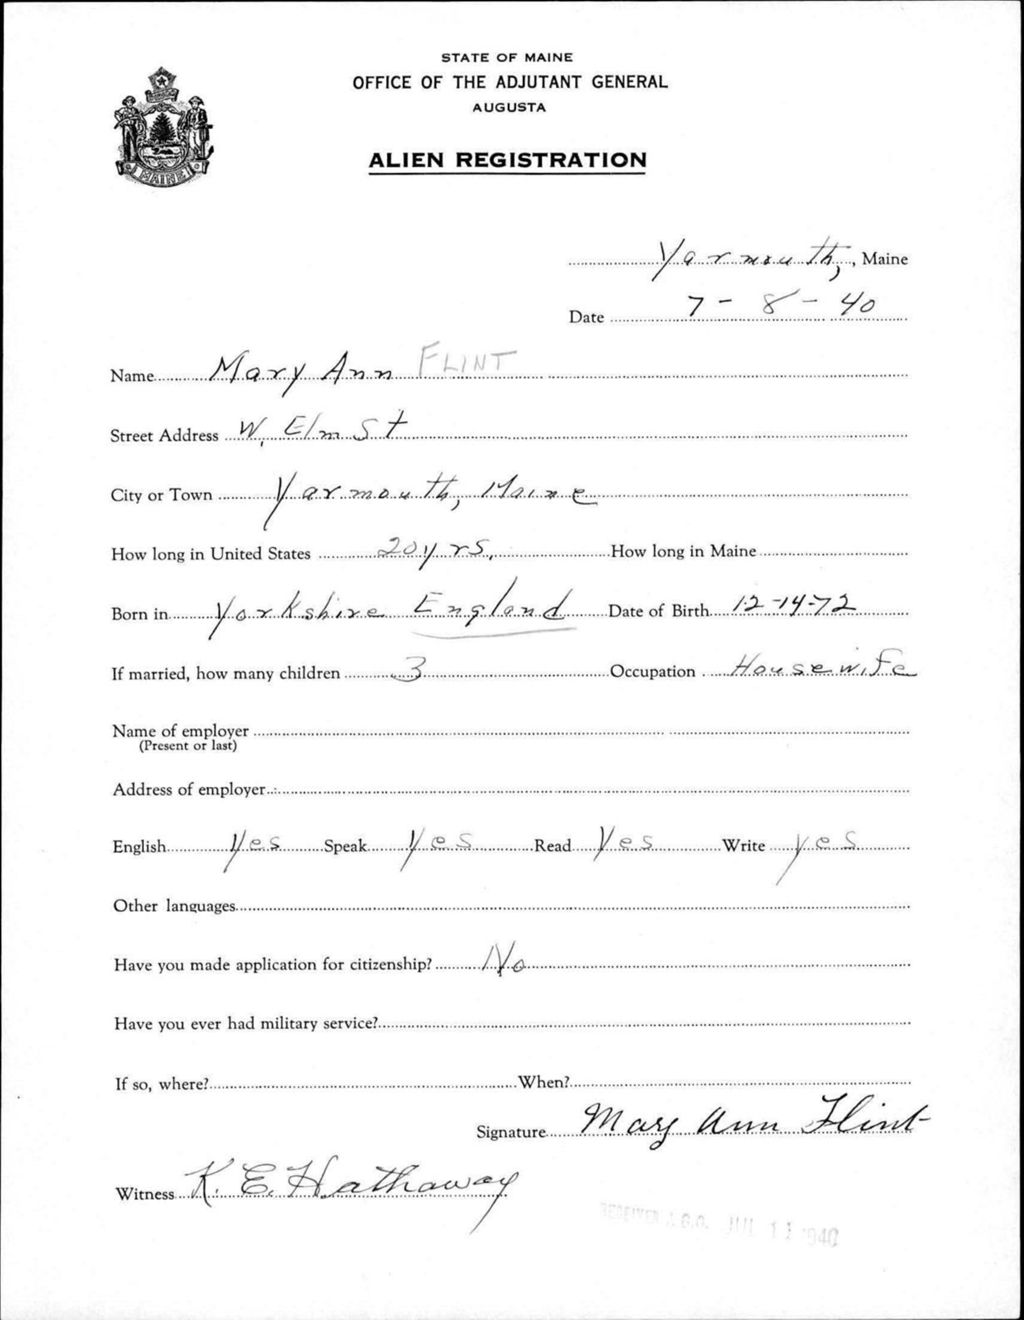 STATE OF MAINE
OFFICE OF THE ADJUTANT GENERAL
AUGUSTA
ALIEN REGISTRATION
MAINE
Yarmouth, Maine
Date 7-8-40
Name Mary Ann FLINT
Street Address W. Elm St
City or Town Yarmouth, Maine
How long in United States 20 yrs. How long in Maine
Born in Yorkshire England Date of Birth 12-14-72
If married, how many children 3 Occupation Housewife
Name of employer
(Present or last)
Address of employer
English Yes Speak Yes Read Yes Write yes
Other languages
Have you made application for citizenship? No
Have you ever had military service?
If so, where? When?
Signature Mary Ann Flint
Witness K. E. Hathaway
RECEIVED A.G.O. JUL 11 1940